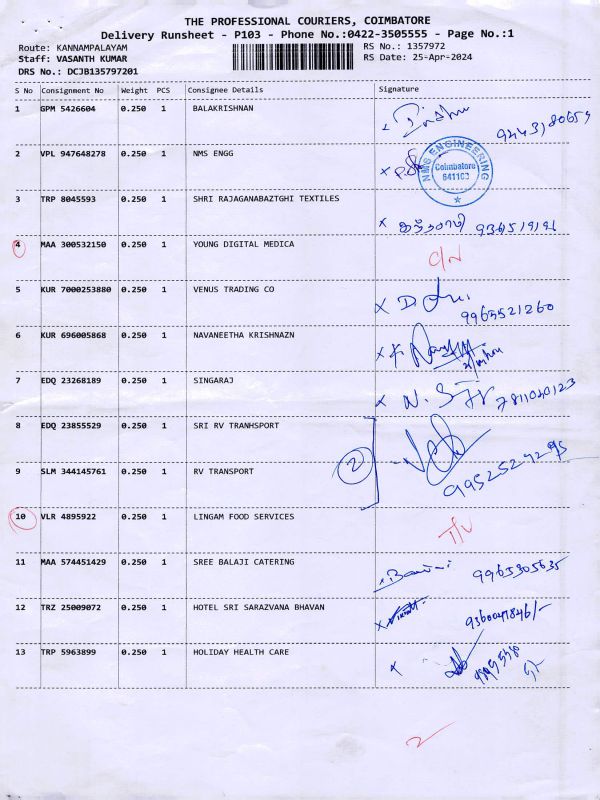 THE PROFESSIONAL COURIERS, COIMBATORE
Delivery Runsheet - P103 - Phone No.:0422-3505555 - Page No.:1
Route: KANNAMPALAYAM RS No.: 1357972
Staff: VASANTH KUMAR RS Date: 25-Apr-2024
DRS No.: DCJB135797201
S No Consignment No Weight PCS Consignee Details Signature
1 GPM 5426604 0.250 1 BALAKRISHNAN
2 VPL 947648278 0.250 1 NMS ENGG
NMS ENGINEERING
Coimbatore
641103
3 TRP 8045593 0.250 1 SHRI RAJAGANABAZTGHI TEXTILES
4 MAA 300532150 0.250 1 YOUNG DIGITAL MEDICA
5 KUR 7000253880 0.250 1 VENUS TRADING CO 9963521260
6 KUR 696005868 0.250 1 NAVANEETHA KRISHNAZN
7 EDQ 23268189 0.250 1 SINGARAJ
8 EDQ 23855529 0.250 1 SRI RV TRANHSPORT
2
9 SLM 344145761 0.250 1 RV TRANSPORT
10 VLR 4895922 0.250 1 LINGAM FOOD SERVICES
11 MAA 574451429 0.250 1 SREE BALAJI CATERING 9965305635
12 TRZ 25009072 0.250 1 HOTEL SRI SARAZVANA BHAVAN
13 TRP 5963899 0.250 1 HOLIDAY HEALTH CARE